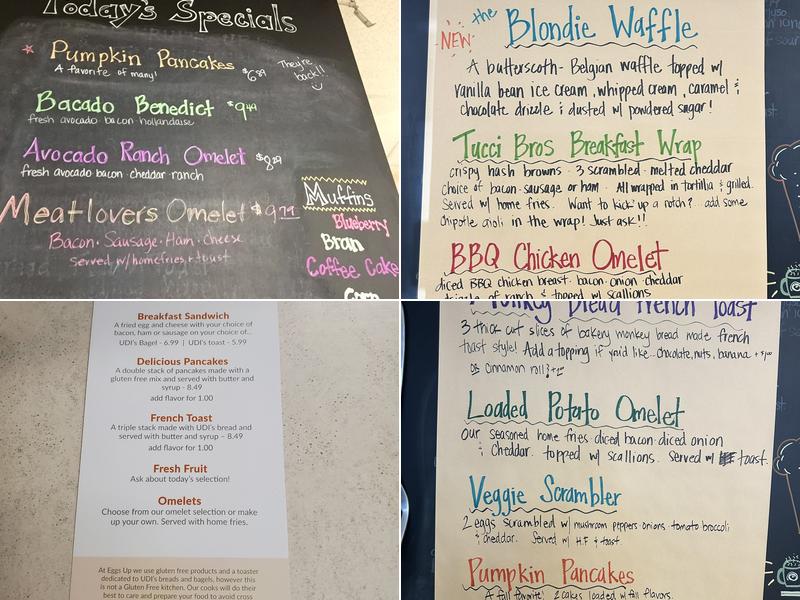 Today's Specials
Pumpkin Pancakes $6.89
A favorite of many!
They're
back!!
Bacado Benedict $9.49
fresh avocado · bacon · hollandaise
Avocado Ranch Omelet $8.29
fresh avocado bacon · cheddar · ranch
Meatlovers Omelet $9.79
Bacon · Sausage · Ham · Cheese
Served w/homefries + toast
Muffins
Blueberry
Bran
Coffee Cake
Corn
NEW the Blondie Waffle
A butterscotch- Belgian waffle topped w/
vanilla bean ice cream, whipped cream, caramel &
chocolate drizzle & dusted w/ powdered sugar!
Tucci Bros Breakfast Wrap
crispy hash browns · 3 scrambled · melted cheddar
choice of bacon · sausage or ham · All wrapped in tortilla & grilled.
Served w/ home fries. Want to kick up a notch? add some
chipotle aioli in the wrap! Just ask!!
BBQ Chicken Omelet
diced BBQ chicken breast · bacon · onion · cheddar
drizzle of ranch & topped w/ scallions
Breakfast Sandwich
A fried egg and cheese with your choice of
bacon, ham or sausage on your choice of...
UDI's Bagel - 6.99 | UDI's toast - 5.99
Delicious Pancakes
A double stack of pancakes made with a
gluten free mix and served with butter and
syrup - 8.49
add flavor for 1.00
French Toast
A triple stack made with UDI's bread and
served with butter and syrup – 8.49
add flavor for 1.00
Fresh Fruit
Ask about today's selection!
Omelets
Choose from our omelet selection or make
up your own. Served with home fries.
At Eggs Up we use gluten free products and a toaster
dedicated to UDI's breads and bagels, however this
is not a Gluten Free kitchen. Our cooks will do their
best to care and prepare your food to avoid cross
Monkey Bread French Toast
3 thick cut slices of bakery monkey bread made french
toast style! Add a topping if you'd like... chocolate, nuts, banana + $1.00
or cinnamon roll!
Loaded Potato Omelet
Our seasoned home fries · diced bacon · diced onion
& cheddar. topped w/ scallions. Served w/ toast.
Veggie Scrambler
2 eggs scrambled w/ mushroom peppers · onions · tomato broccoli
& cheddar. Served w/ H.F & toast
Pumpkin Pancakes
A fall favorite! 2 cakes loaded w/ fall flavors.